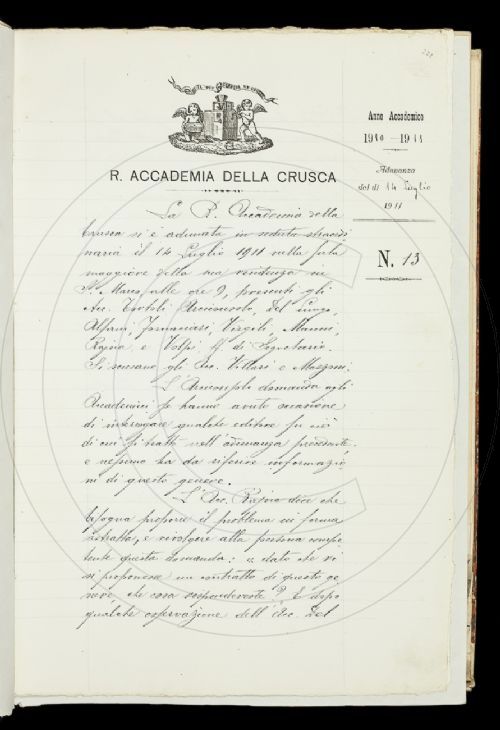 IL PIÙ BEL FIOR NE COGLIE
R. ACCADEMIA DELLA CRUSCA
Anno Accademico
1910-1911
Adunanza
del dì 14 Luglio
1911
N. 13
La R. Accademia della
Crusca si è adunata in seduta straordi
naria il 14 Luglio 1911 nella sala
maggiore della sua residenza in
S. Marco, alle ore 9, presenti gli
Acc. Tortoli Arciconsolo, Del Lungo,
Alfani, Tommasi, Vergili, Manni,
Rajna e Volpi ff. di Segretario.
Si scusano gli Acc. Villari e Mazzoni.
L'Arciconsolo domanda agli
Accademici se hanno avuto occasione
di interrogare qualche editore su ciò
di cui si trattò nell'adunanza precedente,
e nessuno ha da riferire informazio
ni di questo genere.
L'Acc. Rajna dice che
bisogna proporre il problema in forma
astratta, e rivolgere alla persona compe
tente questa domanda: « dato che vi
si proponesse un contratto di questo ge
nere, che cosa rispondereste? E dopo
qualche osservazione dell'Acc. Del